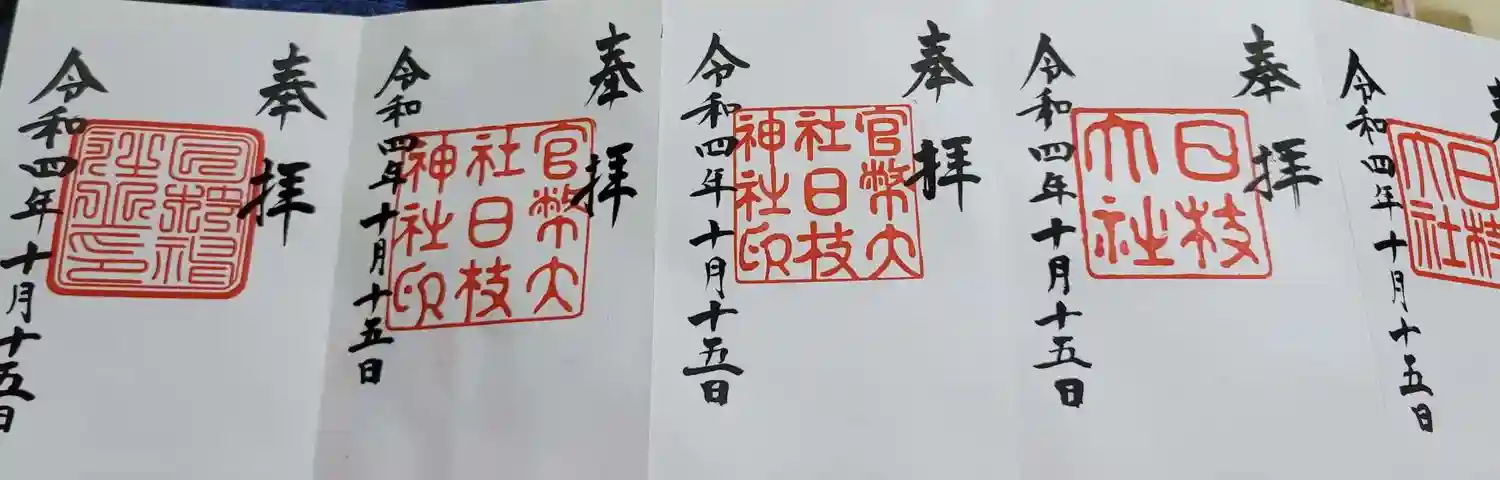 奉
日枝
大社
令和四年十月十五日
奉拝
日枝
大社
令和四年十月十五日
奉拝
官幣大
社日枝
神社印
令和四年十月十五日
奉拝
官幣大
社日枝
神社印
令和四年十月十五日
奉拝
令和四年十月十五日